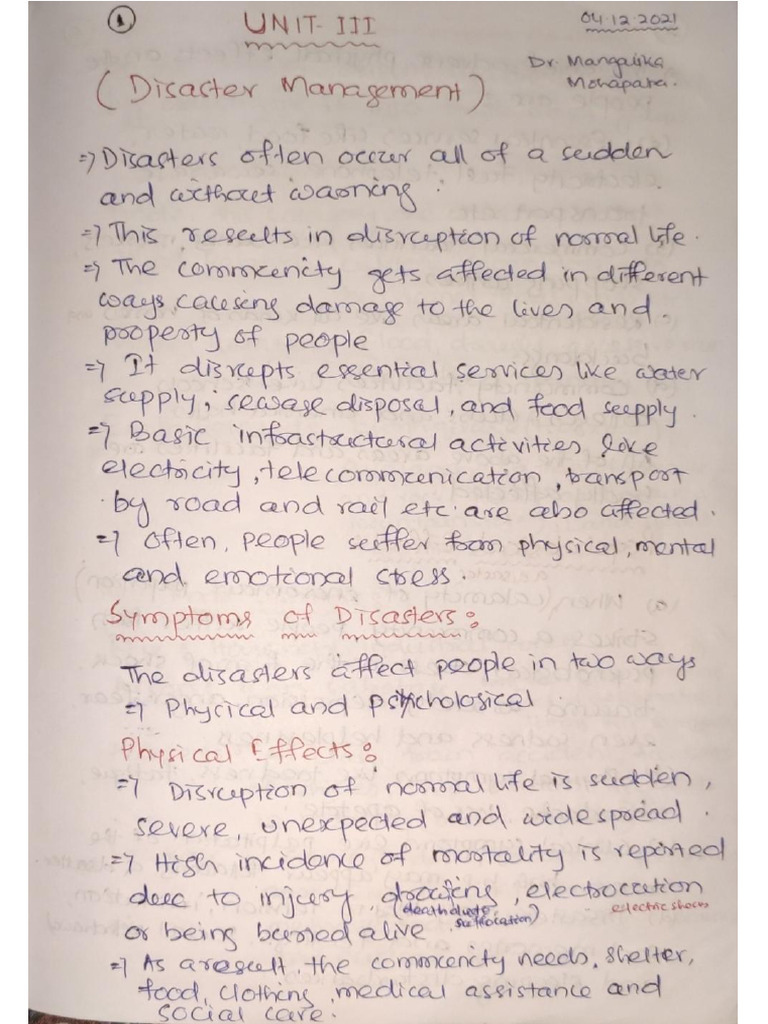 1
UNIT-III
04.12.2021
Dr. Mangalika
Mohapatra.
(Disaster Management)
⇒ Disasters often occur all of a sudden
and without warning.
⇒ This results in disruption of normal life.
⇒ The community gets affected in different
ways, causing damage to the lives and
property of people
⇒ It disrupts essential services like water
supply, sewage disposal, and food supply.
⇒ Basic infrastructural activities, like
electricity, telecommunication, transport
by road and rail etc. are also affected.
⇒ Often, people suffer from physical, mental
and emotional stress.
Symptoms of Disasters:
The disasters affect people in two ways
⇒ Physical and Psychological.
Physical Effects:
⇒ Disruption of normal life is sudden,
severe, unexpected and widespread.
⇒ High incidence of mortality is reported
due to injury, drowning, electrocution
(death due to suffocation) electric shocks
or being burried alive
⇒ As a result, the community needs, shelter,
food, clothing, medical assistance and
social care.